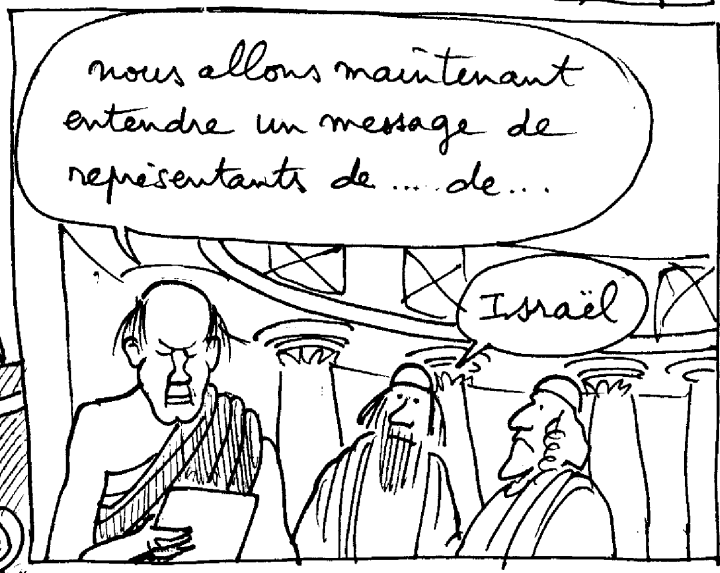 nous allons maintenant
entendre un message de
représentants de .... de...
Israël